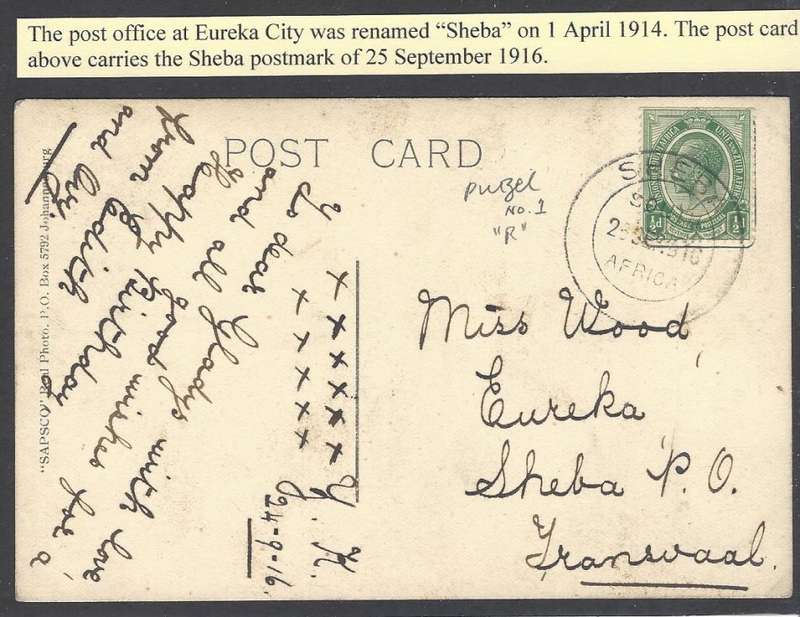 The post office at Eureka City was renamed “Sheba” on 1 April 1914. The post card
above carries the Sheba postmark of 25 September 1916.
POST CARD
PURZEL
No. 1
"R"
SHEBA
AFRICA
½d
½d
Miss Wood
Eureka
Sheba P.O.
Transvaal.
To dear Gladys with love
and all good wishes for a
Happy Birthday
from Edith
and Cy.
x x x x x x
x x x x x
Y. K.
24-9-16.
"SAPSCO" Real Photo. P.O. Box 5792 Johannesburg